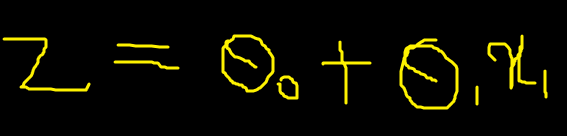 z = θ₀ + θ₁x₁